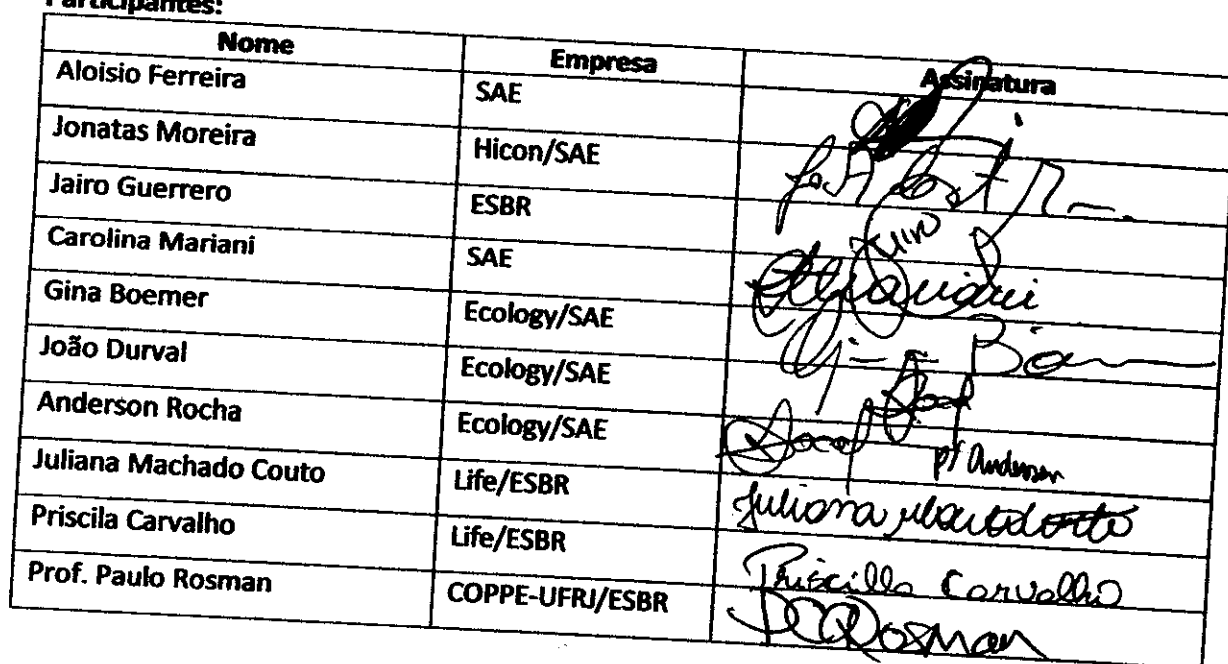 Participantes:
Nome Empresa Assinatura
Aloisio Ferreira SAE
Jonatas Moreira Hicon/SAE
Jairo Guerrero ESBR
Carolina Mariani SAE
Gina Boemer Ecology/SAE
João Durval Ecology/SAE
Anderson Rocha Ecology/SAE p/ Anderson
Juliana Machado Couto Life/ESBR Juliana
Priscila Carvalho Life/ESBR Priscilla Carvalho
Prof. Paulo Rosman COPPE-UFRJ/ESBR PCRosman